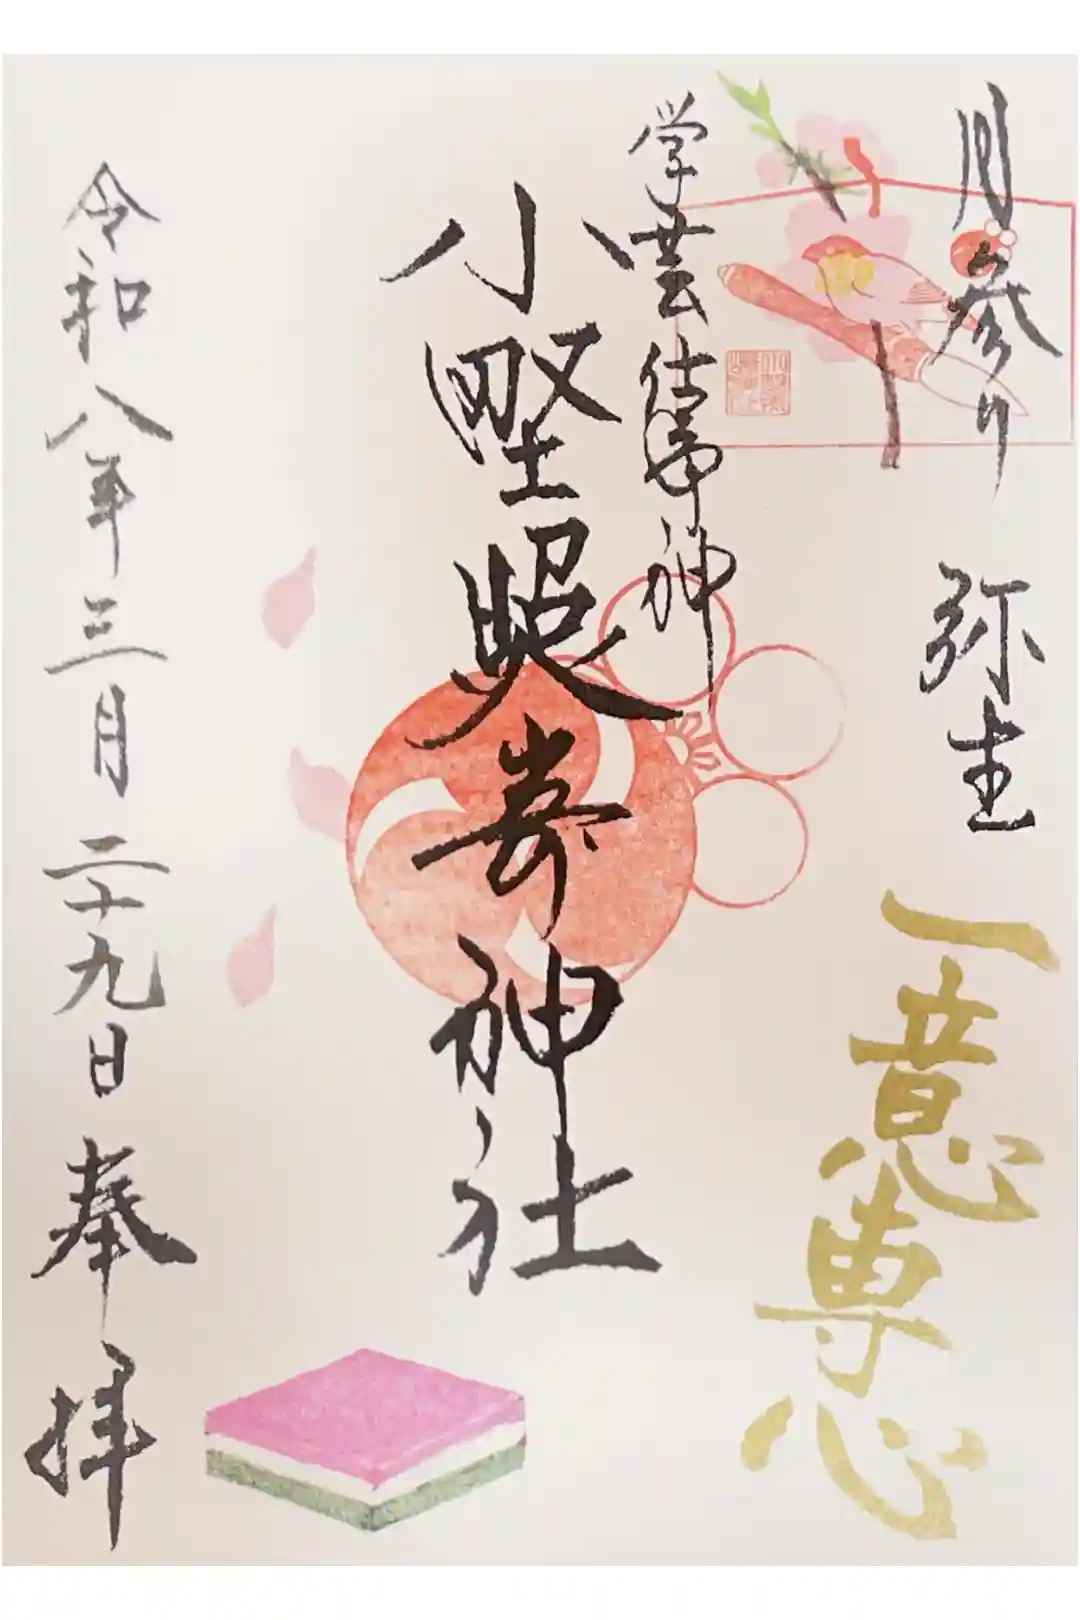 月参り
弥生
一意専心
学芸仕事神
小野照崎神社
令和八年三月二十九日
奉拝